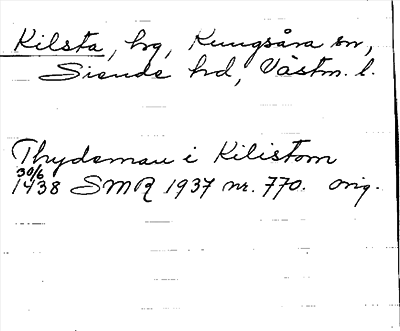 Kilsta, hg, Kungsåra sn,
Siende hd, Västm. l.
Thydeman i Kilistom
30/6
1438 SMR 1937 nr. 770. orig.